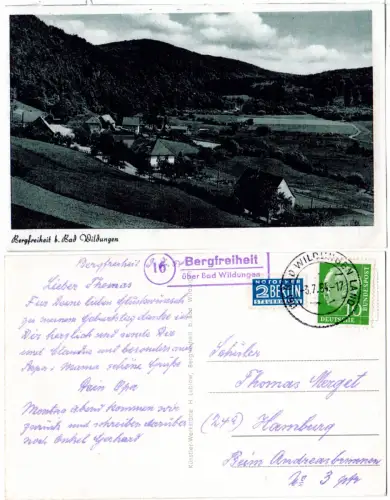 Bergfreiheit b. Bad Wildungen
Bergfreiheit
16
Bergfreiheit
über Bad Wildungen
NOTOPFER
2 BERLIN
STEUERMARKE
BAD WILDUNGEN LAND
.7.55.-17
10
DEUTSCHE
BUNDESPOST
Lieber Thomas
Für Deine lieben Glückwünsche
zu meinem Geburtstag danke ich
Dir herzlich und sende Dir
und Claudia und besonders auch
Papi u Mama schöne Grüße
Dein Opa
Montag abend kommen wir
zurück und schreiben darüber
noch Onkel Gerhart
Schüler
Thomas
(24a) Hamburg
Beim Andreasbrunnen
No 3 ptr